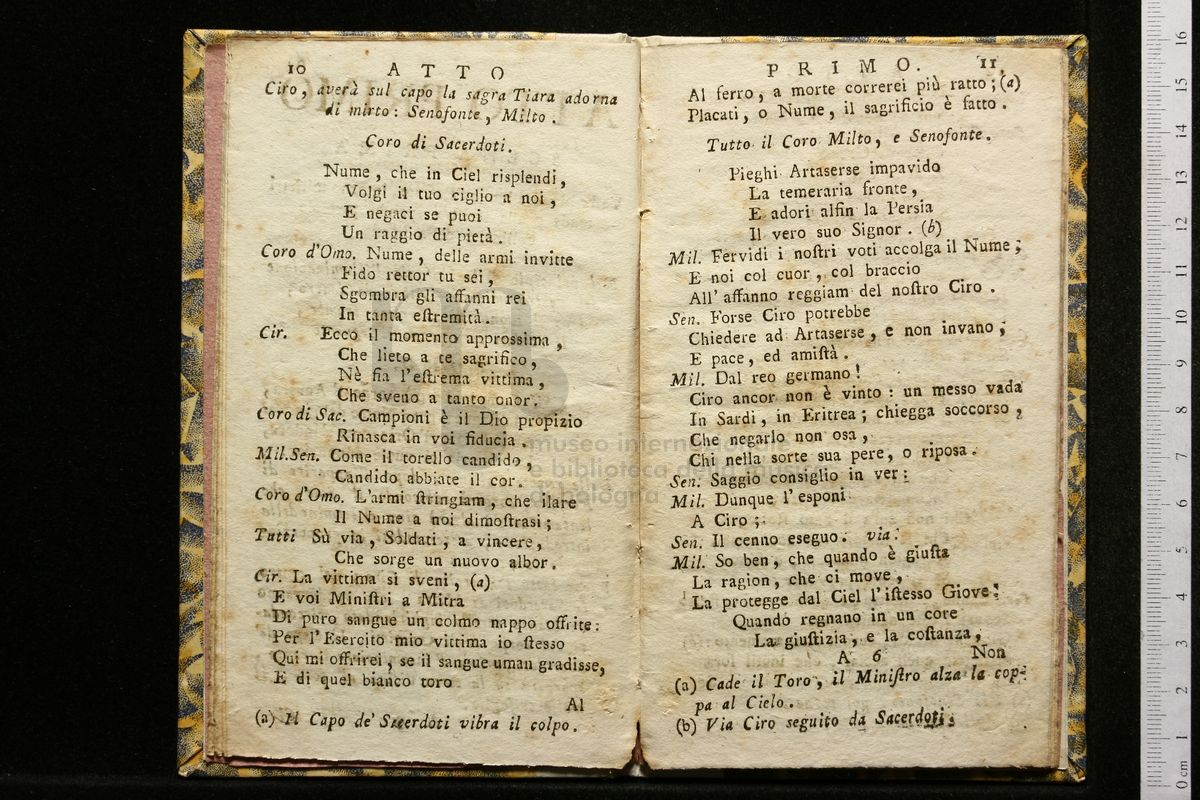 10 ATTO
Ciro, averà sul capo la sagra Tiara adorna
di mirto: Senofonte, Milto.
Coro di Sacerdoti.
Nume, che in Ciel risplendi,
Volgi il tuo ciglio a noi,
E negaci se puoi
Un raggio di pietà.
Coro d'Omo. Nume, delle armi invitte
Fido rettor tu sei,
Sgombra gli affanni rei
In tanta estremità.
Cir. Ecco il momento approssima,
Che lieto a te sagrifico,
Nè fia l'estrema vittima,
Che sveno a tanto onor.
Coro di Sac. Campioni è il Dio propizio
Rinasca in voi fiducia.
Mil.Sen. Come il torello candido,
Candido abbiate il cor.
Coro d'Omo. L'armi stringiam, che ilare
Il Nume a noi dimostrasi;
Tutti Sù via, Soldati, a vincere,
Che sorge un nuovo albor.
Cir. La vittima si sveni, (a)
E voi Ministri a Mitra
Di puro sangue un colmo nappo offrite:
Per l'Esercito mio vittima io stesso
Qui mi offrirei, se il sangue uman gradisse,
E di quel bianco toro
Al
(a) Il Capo de' Sacerdoti vibra il colpo.
PRIMO. 11
Al ferro, a morte correrei più ratto; (a)
Placati, o Nume, il sagrificio è fatto.
Tutto il Coro Milto, e Senofonte.
Pieghi Artaserse impavido
La temeraria fronte,
E adori alfin la Persia
Il vero suo Signor. (b)
Mil. Fervidi i nostri voti accolga il Nume;
E noi col cuor, col braccio
All' affanno reggiam del nostro Ciro.
Sen. Forse Ciro potrebbe
Chiedere ad Artaserse, e non invano,
E pace, ed amistà.
Mil. Dal reo germano!
Ciro ancor non è vinto: un messo vada
In Sardi, in Eritrea; chiegga soccorso,
Che negarlo non osa,
Chi nella sorte sua pere, o riposa.
Sen. Saggio consiglio in ver:
Mil. Dunque l'esponi
A Ciro;
Sen. Il cenno eseguo. via.
Mil. So ben, che quando è giusta
La ragion, che ci move,
La protegge dal Ciel l'istesso Giove:
Quando regnano in un core
La giustizia, e la costanza,
A 6 Non
(a) Cade il Toro, il Ministro alza la cop-
pa al Cielo.
(b) Via Ciro seguito da Sacerdoti.
museo internazionale
e biblioteca della musica
di bologna
0 cm 1 2 3 4 5 6 7 8 9 10 11 12 13 14 15 16